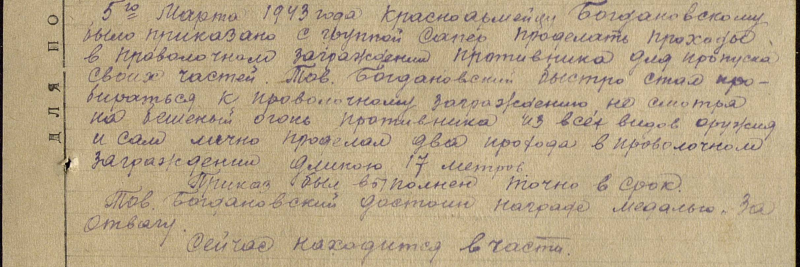 5го Марта 1943 года Красноармейцу Богдановскому
было приказано с группой Сапер проделать проходы
в проволочном заграждении противника для пропуска
своих частей. Тов. Богдановский быстро стал про-
бираться к проволочному заграждению, не смотря
на бешеный огонь противника из всех видов оружия
и сам лично проделал два прохода в проволочном
заграждении длиною 17 метров.
Приказ был выполнен точно в срок.
Тов. Богдановский достоин награде медалью. За
отвагу.
Сейчас находится в части.
ДЛЯ НО